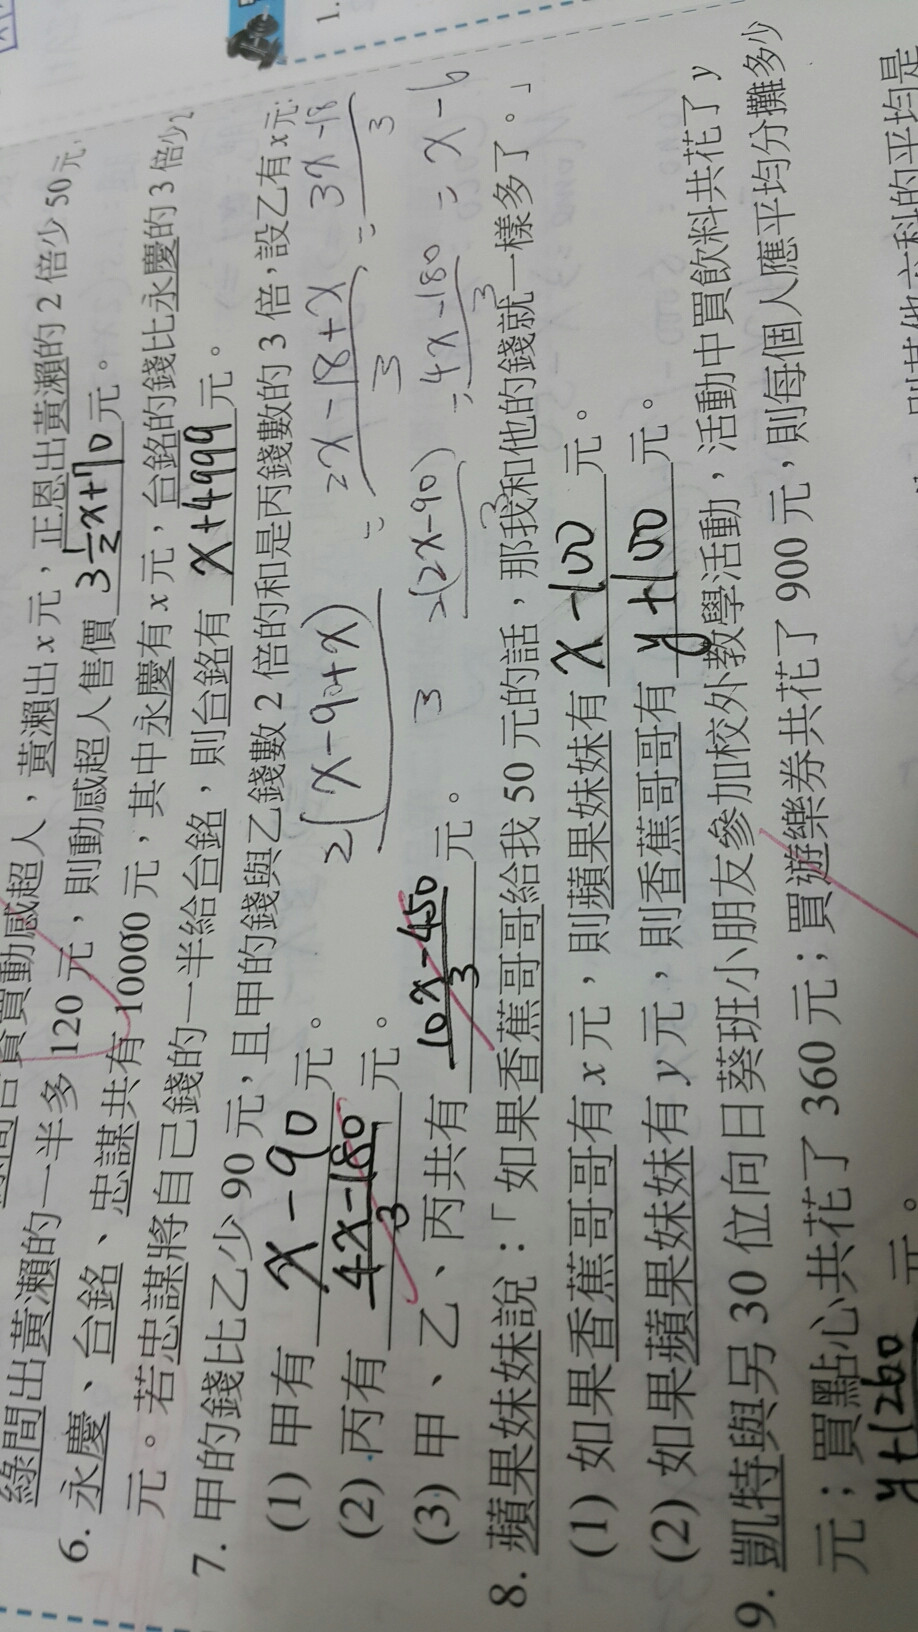 1.
綠間出黃瀨的一半多 120 元，則動感超人售價 3½x+70 元。
黃瀨出 x 元，正恩出黃瀨的 2 倍少 50 元，
6. 永慶、台銘、忠謀共有 10000 元，其中永慶有 x 元，台銘的錢比永慶的 3 倍少 2
元。若忠謀將自己錢的一半給台銘，則台銘有 x+4999 元。
7. 甲的錢比乙少 90 元，且甲的錢與乙錢數 2 倍的和是丙錢數的 3 倍，設乙有 x 元
(1) 甲有 x-90 元。
(2) 丙有 4x-180/3 元。
(3) 甲、乙、丙共有 10x-450/3 元。
2(x-90+x)/3 = 2x-18+x/3 = 3x-18/3
2(2x-90)/3 = 4x-180/3 = x-6
8. 蘋果妹妹說：「如果香蕉哥哥給我 50 元的話，那我和他的錢就一樣多了。」
(1) 如果香蕉哥哥有 x 元，則蘋果妹妹有 x-100 元。
(2) 如果蘋果妹妹有 y 元，則香蕉哥哥有 y+100 元。
9. 凱特與另 30 位向日葵班小朋友參加校外教學活動，活動中買飲料共花了 y
元；買點心共花了 360 元；買遊樂券共花了 900 元，則每個人應平均分攤多少
y+1260 元。
則其他六科的平均是